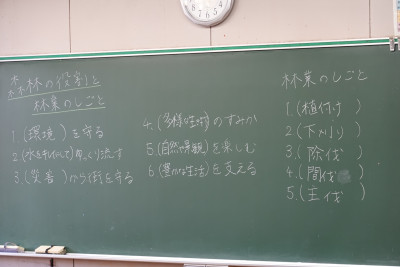 森林の役割と
林業のしごと
1.(環境)を守る
2.(水をたくわえて)ゆっくり流す
3.(災害)から街を守る
4.(多様な生物)のすみか
5.(自然や景観)を楽しむ
6.(豊かな生活)を支える
林業のしごと
1.(植付け)
2.(下刈り)
3.(除伐)
4.(間伐)
5.(主伐)